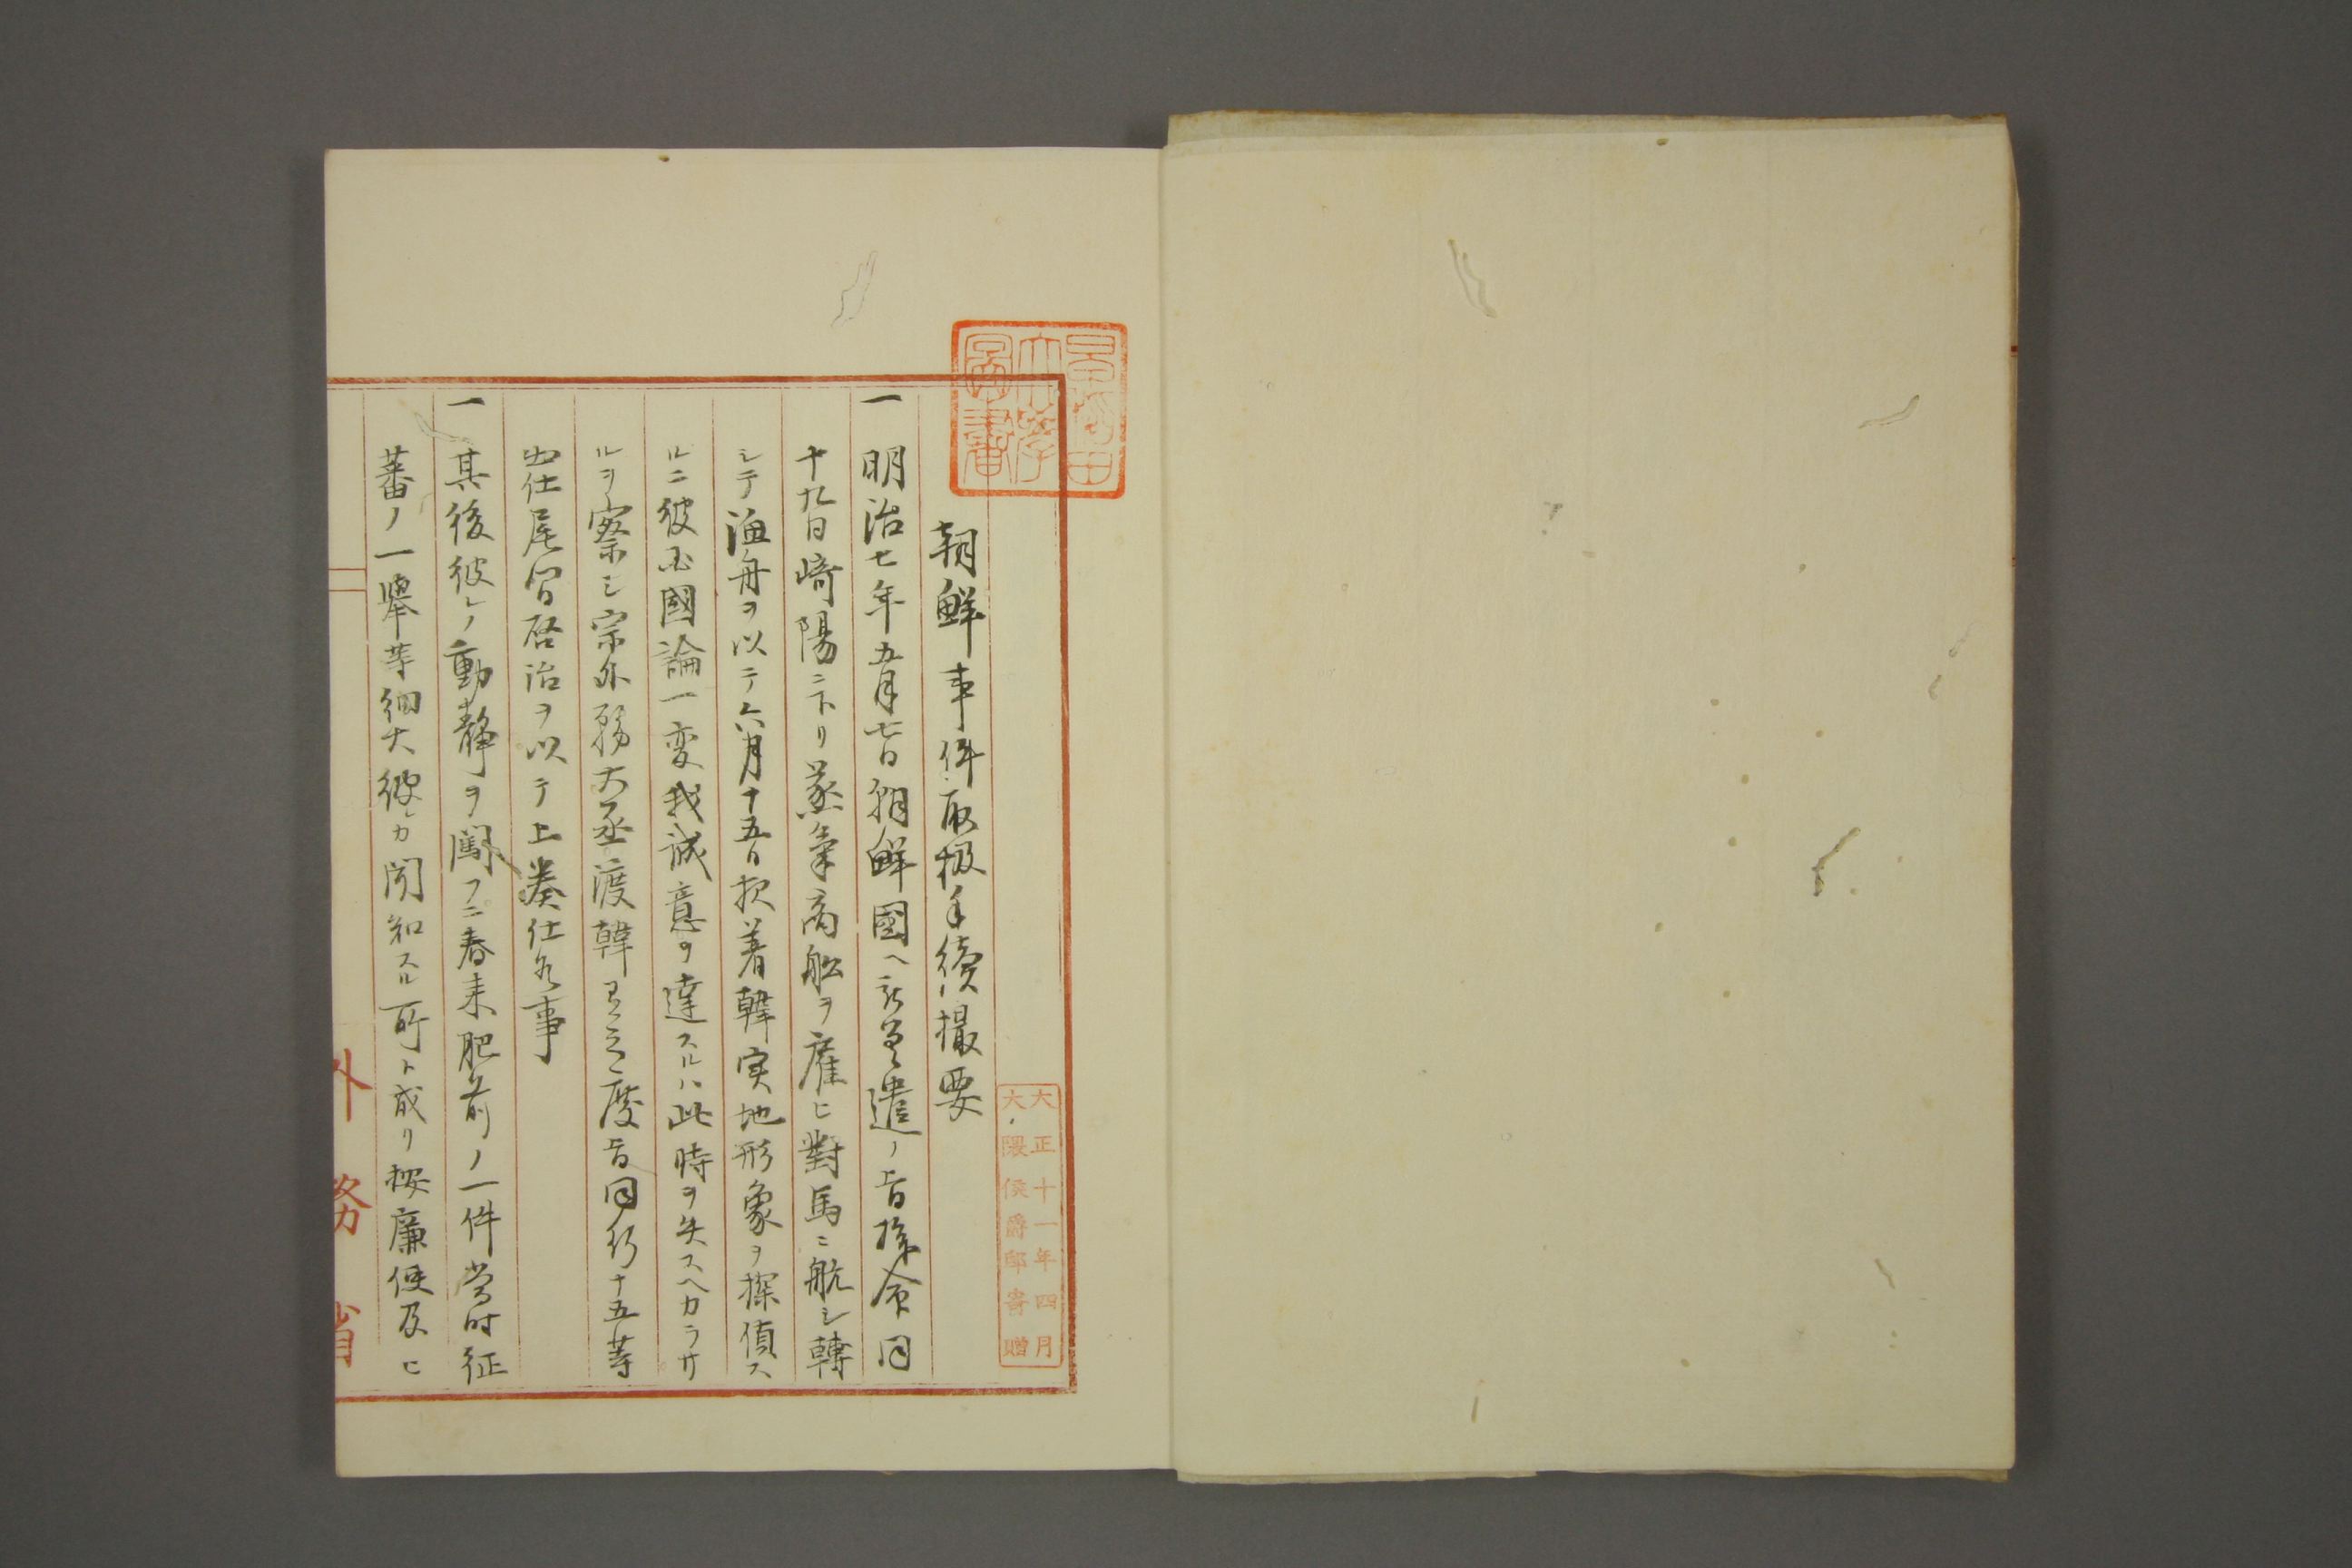 早稲田
大学
図書
大正十一年四月
大隈侯爵邸寄贈
朝鮮事件取扱手續撮要
一明治七年五月七日朝鮮國ヘ遣ノ旨命同
十九日崎陽ニ下リ蒸氣商舩ヲ雇ヒ對馬ニ航シ轉
シテ漁舟ヲ以テ六月十五日投着韓実地形象ヲ探偵ス
ルニ彼国國論一変我誠意ヲ達スルハ此時ヲ失スヘカラサ
ルヲ察シ宗外務大丞渡韓有之度旨同行十五等
出仕尾間啓治ヲ以テ上奏仕候事
一其後彼レノ動静ヲ闖フニ春来肥前ノ一件当時征
蕃ノ一擧等細大彼レカ聞知スル所ト成リ按廉使及ヒ
外務省